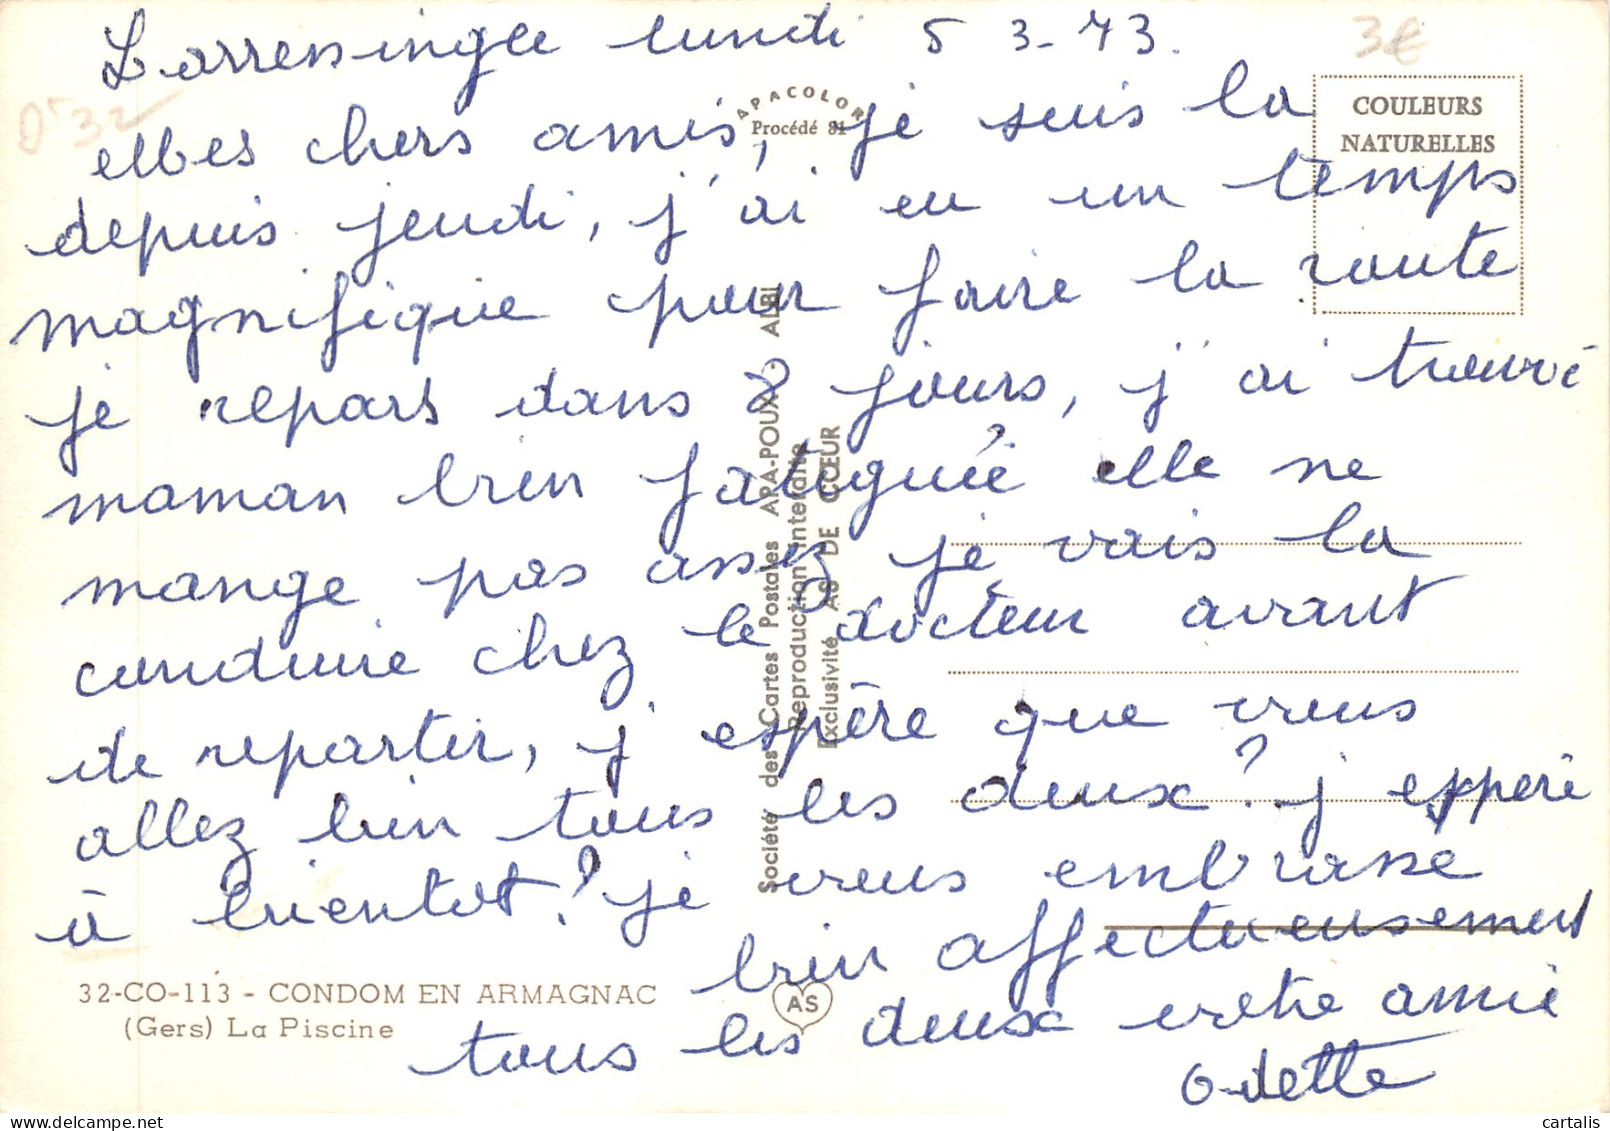 Larressingle lundi 5 3-73.
3€
0'32
APACOLOR
Procédé 81
COULEURS
NATURELLES
Mes chers amis, je suis la
depuis jeudi, j'ai eu un temps
magnifique pour faire la route
je repars dans 8 jours, j'ai trouvé
maman bien fatiguée elle ne
mange pas assez je vais la
conduire chez le docteur avant
de repartir, j'espère que vous
allez bien tous les deux? j'espère
à bientot? je vous embrasse
bien affectueusement
tous les deux votre amie
Odette
Société des Cartes Postales APA-POUX - ALBI
Reproduction Interdite
Exclusivité AS DE CŒUR
32-CO-113 - CONDOM EN ARMAGNAC
(Gers) La Piscine
AS
cartalis